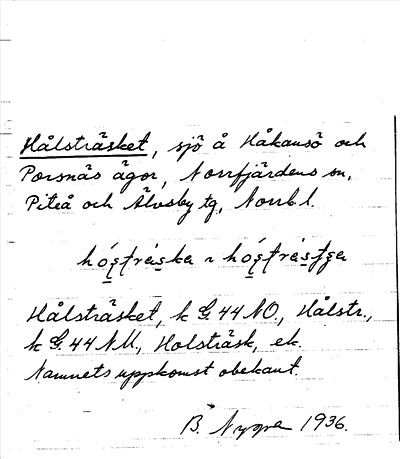 Hålsträsket, sjö å Håkansö och
Porsnäs ägor, Norrfjärdens sn,
Piteå och Älvsby tg, Norrb. l.
Hålsträsket, k G. 44 NO., Hålstr.,
k G. 44 NU., Holsträsk, ek.
Namnets uppkomst obekant.
B. Nygre 1936.